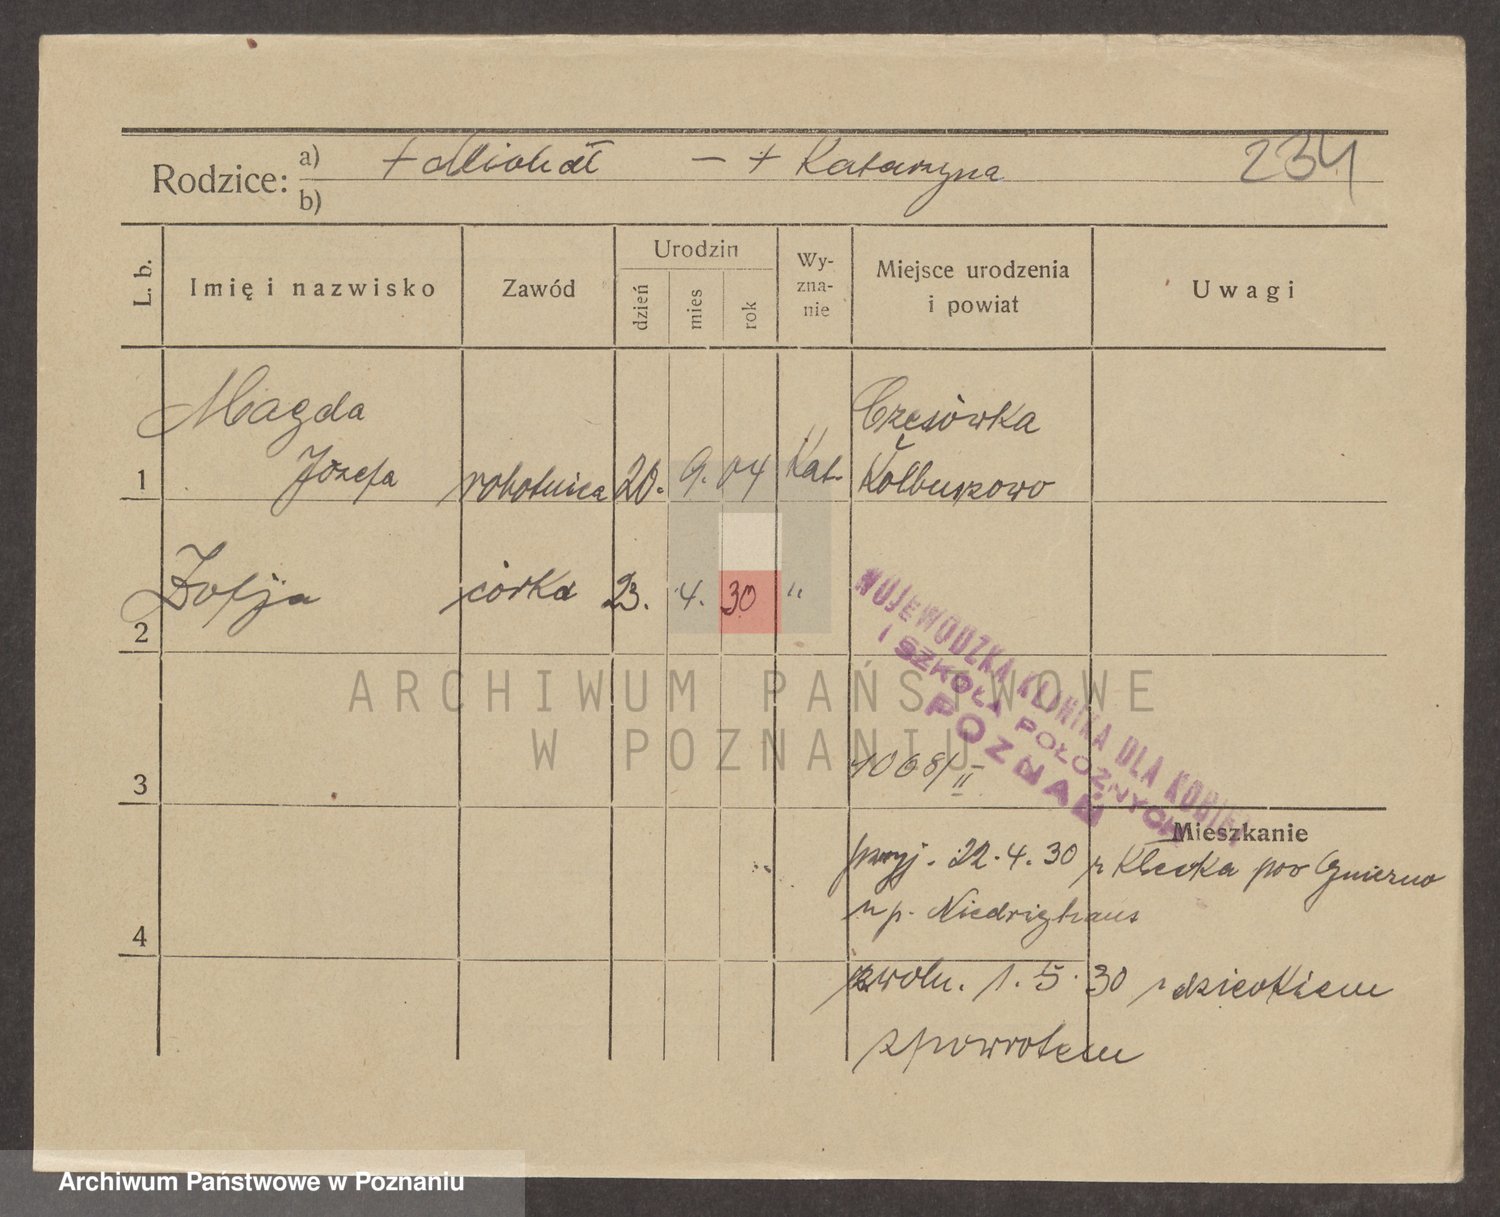 Rodzice: a) + Michał - + Katarzyna 234
b)
L. b. Imię i nazwisko Zawód Urodzin dzień mies rok Wyznanie Miejsce urodzenia i powiat Uwagi
Magda Czesówka
1 Józefa robotnica 20. 9. 04 Kat. Kolbuszowo
2 Zofja córka 23. 4. 30 "
WOJEWÓDZKA KLINIKA DLA KOBIET
I SZKOŁA POŁOŻNYCH
POZNAŃ
ARCHIWUM PAŃSTWOWE
W POZNANIU
3 1068/II
Mieszkanie
przyj. 22.4.30 z Klecka pow Gniezno
u p. Niedrighaus
4
zwoln. 1.5.30 z dzieckiem
zpowrotem
Archiwum Państwowe w Poznaniu